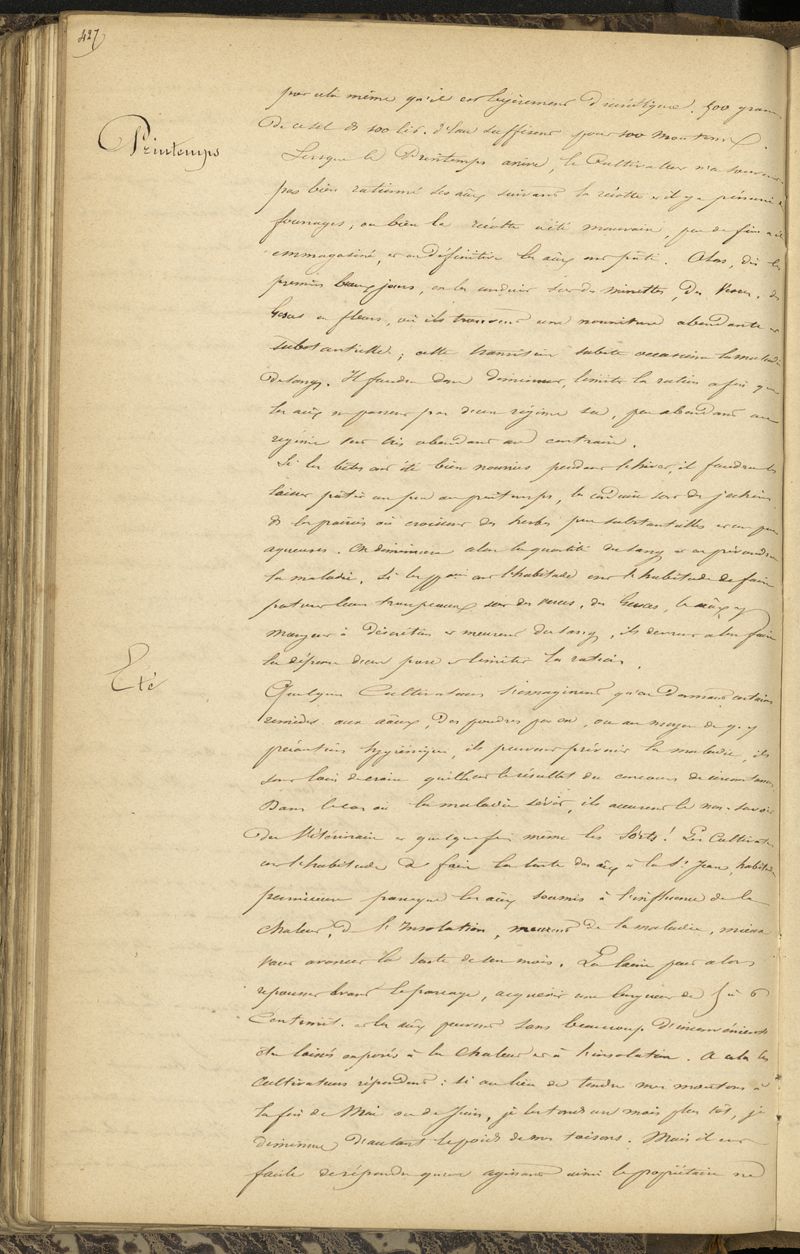 427
par cela même qu'il est légèrement diurétique. 500 gram.
de ce sel ds 100 lit. d'eau suffisent pour 100 moutons.
Printemps
Lorsque le Printemps arrive, le Cultivateur n'a souvent
pas bien rationné ses aux suivant la récolte et il y a pénurie de
fourrages, ou bien la récolte a été mauvaise, peu de foin a été
emmagasiné, et en définitive les aux ont pâti. Alors, dès les
premiers beaux jours, on les conduit sur des minettes, des Vesces, des
Gesses en fleurs, où ils trouvent une nourriture abondante et
substantielle; cette transition subite occasionne la maladie
de sang. Il faudra donc diminuer, limiter la ration afin que
les aux ne passent pas d'un régime sec, peu abondant au
régime vert très abondant au contraire.
Si les bêtes ont été bien nourries pendant l'hiver, il faudra les
laisser pâtir un peu au printemps, les conduire sur des jachères
ds les prairies où croissent des herbes peu substantielles et un peu
aqueuses. On diminuera alors la quantité du sang et on préviendra
la maladie. Si les ont l'habitude ont l'habitude de faire
paturer leurs troupeaux sur des vesces, des Gesses, les aux y
mangent à discrétion et meurent du sang, ils devront alors faire
la dépense d'un parc et limiter la ration.
Eté
Quelques Cultivateurs s'imaginent qu'en donnant certains
remèdes aux aux, des poudres par ex, ou au moyen de q.q.
précautions hygiénique, ils peuvent prévenir la maladie, ils
sont loin de croire qu'elle est le résultat du concours de circonstances.
Dans le cas où la maladie sévit, ils accusent le non-savoir
du Vétérinaire et quelquefois même les Sorts! Les Cultivateurs
ont l'habitude de faire la tonte des aux à la St Jean, habitude
pernicieuse parceque les aux soumis à l'influence de la
chaleur, de l'Insolation, meurent de la maladie, mieux
vaut avancer la tonte de un mois. La laine peut alors
repousser avant le parcage, acquérir une longueur de 5 à 6
Centimèt. et les aux peuvent sans beaucoup d'inconvénients
être laissés exposés à la Chaleur et à l'insolation. A cela les
Cultivateurs répondent: si au lieu de tondre mes moutons à
la fin de Mai ou de Juin, je les tonds un mois plus tôt, je
diminue d'autant le poids de mes toisons. Mais il est
facile de répondre qu'en agissant ainsi le propriétaire ne